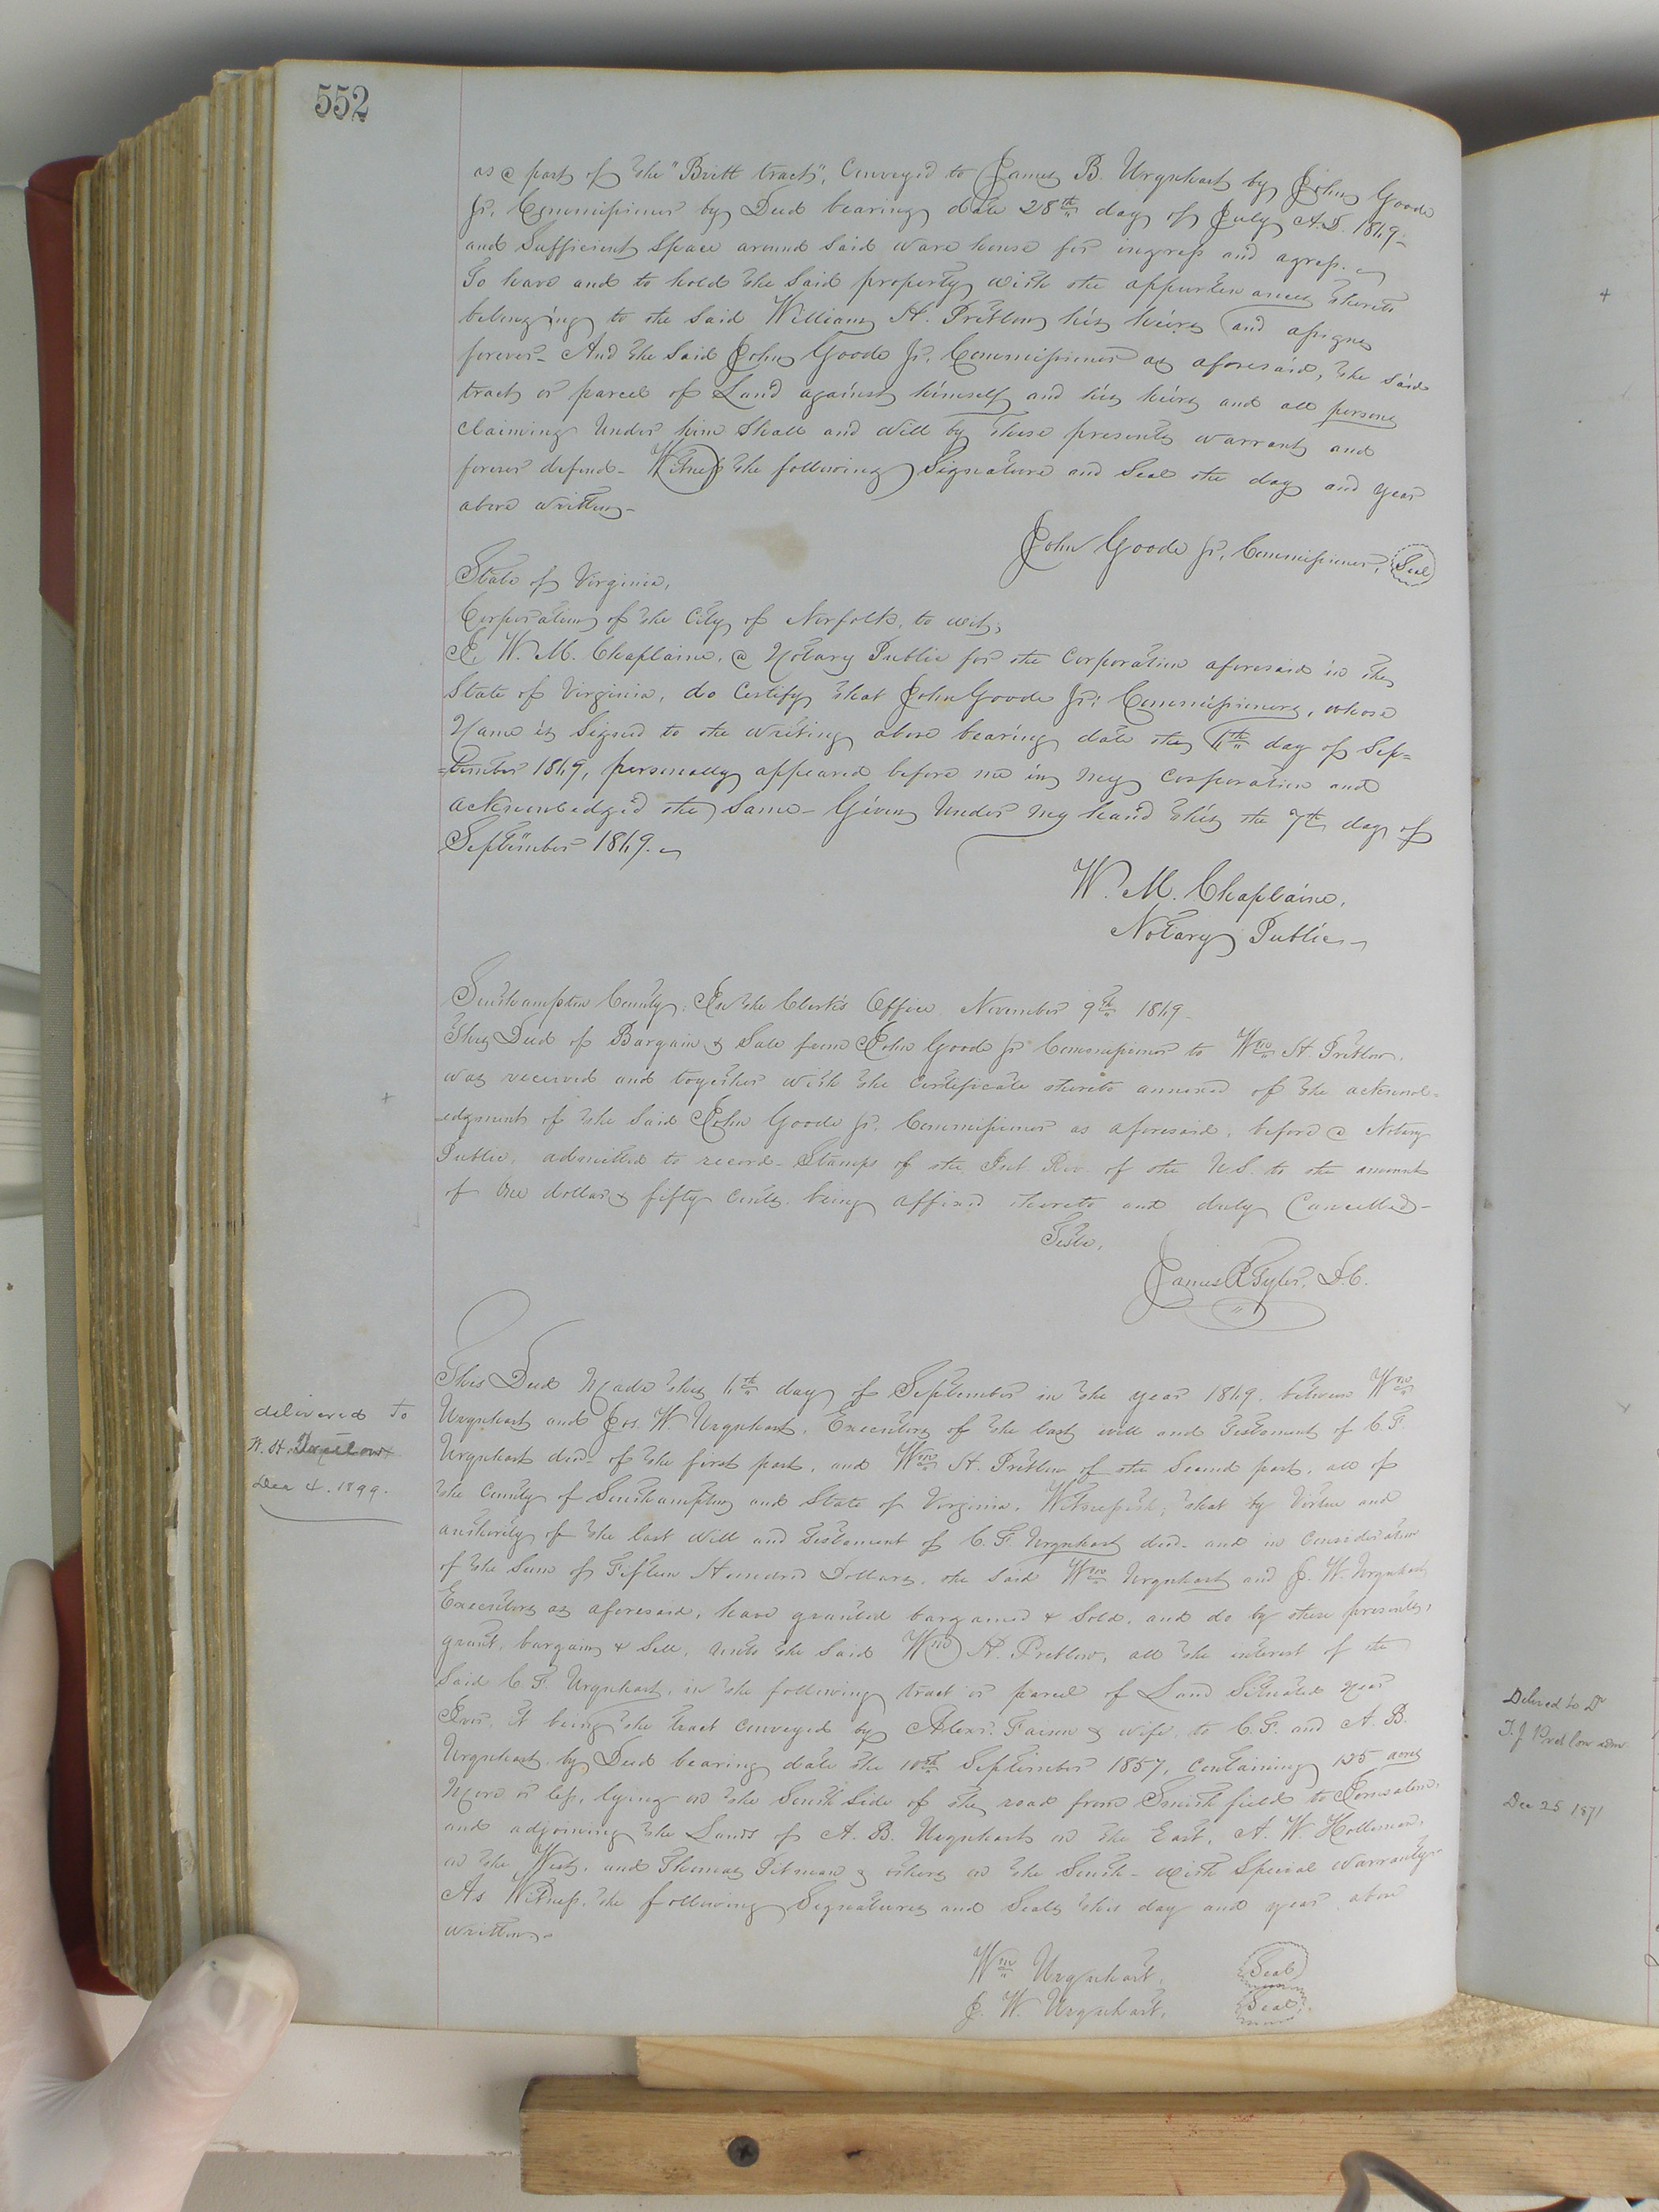 552
as a part of the "Britt tract", Conveyed to James B. Urquhart by John Goode
Jr. Commissioner by Deed bearing date 28th day of July A.D. 1869-
and Sufficient Space around Said ware house for ingress and agress.
To have and to hold the Said property with the appurtenances thereto
belonging to the Said William H. Pretlow his heirs and assigns
forever- And the Said John Goode Jr. Commissioner as aforesaid, the said
tract or parcel of Land against himself and his heirs and all persons
claiming Under him Shall and Will by these presents warrant and
forever defend- Witness the following Signature and Seal the day and year
above written-
John Goode Jr. Commissioner, Seal
State of Virginia,
Corporation of the City of Norfolk, to wit;
I, W. M. Chaplaine, a Notary Public for the Corporation aforesaid in the
State of Virginia, do Certify that John Goode Jr. Commissioner, whose
Name is Signed to the Writing above bearing date the 6th day of Sep=
=tember 1869, personally appeared before me in my Corporation and
acknowledged the Same- Given Under my hand this the 7th day of
September 1869.
W. M. Chaplaine,
Notary Public-
Southampton County: In the Clerk's Office November 9th 1869-
This Deed of Bargain & Sale from John Goode Jr Commissioner to Wm H. Pretlow.
was received and together with the Certificate thereto annexed of the acknowl=
=edgment of the Said John Goode Jr. Commissioner as aforesaid, before a Notary
Public, admitted to record- Stamps of the Int Rev. of the U.S. to the amount
of One dollar & fifty Cents. being affixed thereto and duly Cancelled-
Teste,
James R Tyler, D.C.
This Deed Made this 6th day of September in the year 1869. between Wm
Urquhart and Jos. W. Urquhart, Executors of the last will and Testament of C. F.
Urquhart decd- of the first part, and Wm H. Pretlow of the Second part, all of
the County of Southampton and State of Virginia, Witnesseth; that by Virtue and
authority of the last Will and Testament of C. F. Urquhart decd- and in Consideration
of the Sum of Fifteen Hundred Dollars, the Said Wm Urquhart and J. W. Urquhart
Executors as aforesaid, have granted bargained & Sold, and do by these presents,
grant, bargain & Sell, unto the Said Wm H. Pretlow, all the interest of the
Said C. F. Urquhart, in the following tract or parcel of Land Situated near
Ivor, it being the tract Conveyed by Alexr. Faison & wife, to C. F. and A. B.
Urquhart by Deed bearing date the 10th September 1857, Containing 125 acres
More or less, lying on the South Side of the road from Smithfield to Jerusalem,
and adjoining the Lands of A. B. Urquhart on the East, A. W. Holleman,
on the West, and Thomas Pitman & others on the South- with Special Warranty-
As Witness, the following Signatures and Seals this day and year above
written-
Wm Urquhart, Seal
J. W. Urquhart, Seal
delivered to
W. H.
Dec 4. 1899.
Delived to Dr
T. J Pretlow adm
Dec 25 1871